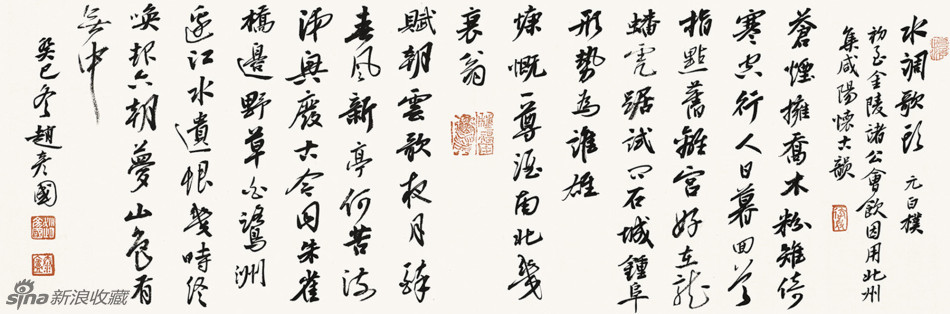 水調歌頭 元白樸
初至金陵諸公會飲因用北州
集咸陽懷古韻
蒼煙擁喬木粉雉倚
寒空行人日暮回首
指點舊離宮好在龍
蟠虎踞試問石城鍾阜
形勢為誰雄
慷慨一尊酒南北幾
衰翁
賦朝雲歌夜月醉
春風新亭何苦流
涕興廢古今同朱雀
橋邊野草白鷺洲
邊江水遺恨幾時終
喚起六朝夢山色有
無中
癸巳冬趙彥國
sina新浪收藏